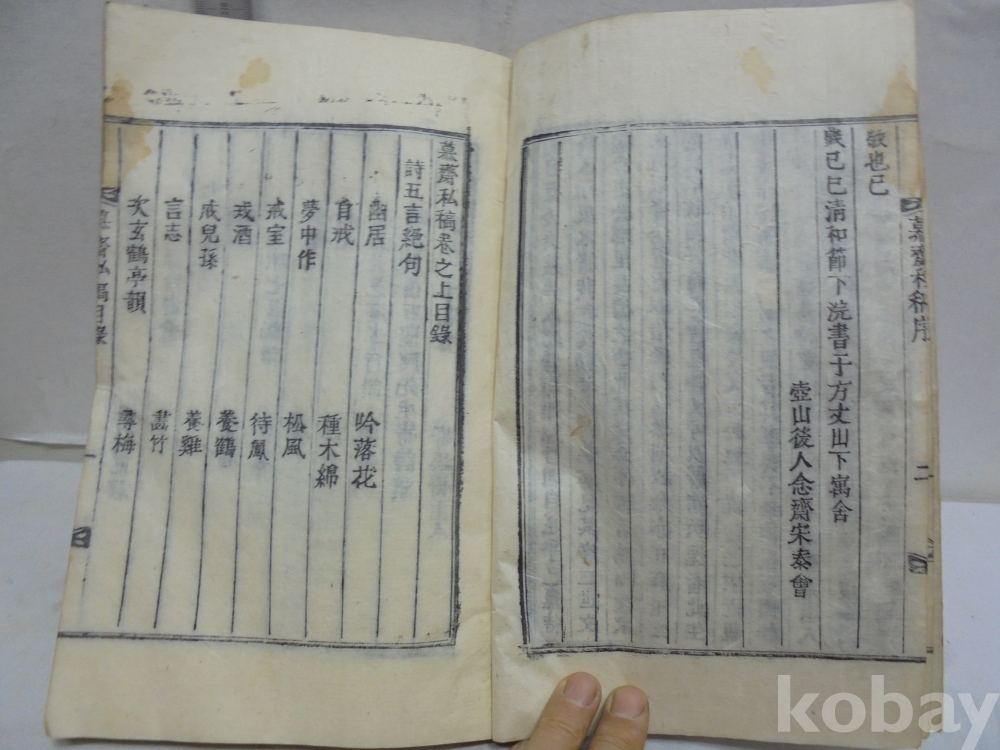 慕齋私稿序
二
敬也已
歲己巳淸和節下浣書于方丈山下寓舍
壺山後人念齋宋泰會
慕齋私稿卷之上目錄
詩五言絕句
幽居
吟落花
自戒
種木綿
夢中作
松風
戒室
待鳳
戒酒
養鶴
戒兒孫
養雞
言志
畵竹
次玄鶴亭韻
尋梅
慕齋私稿目錄
一
kobay